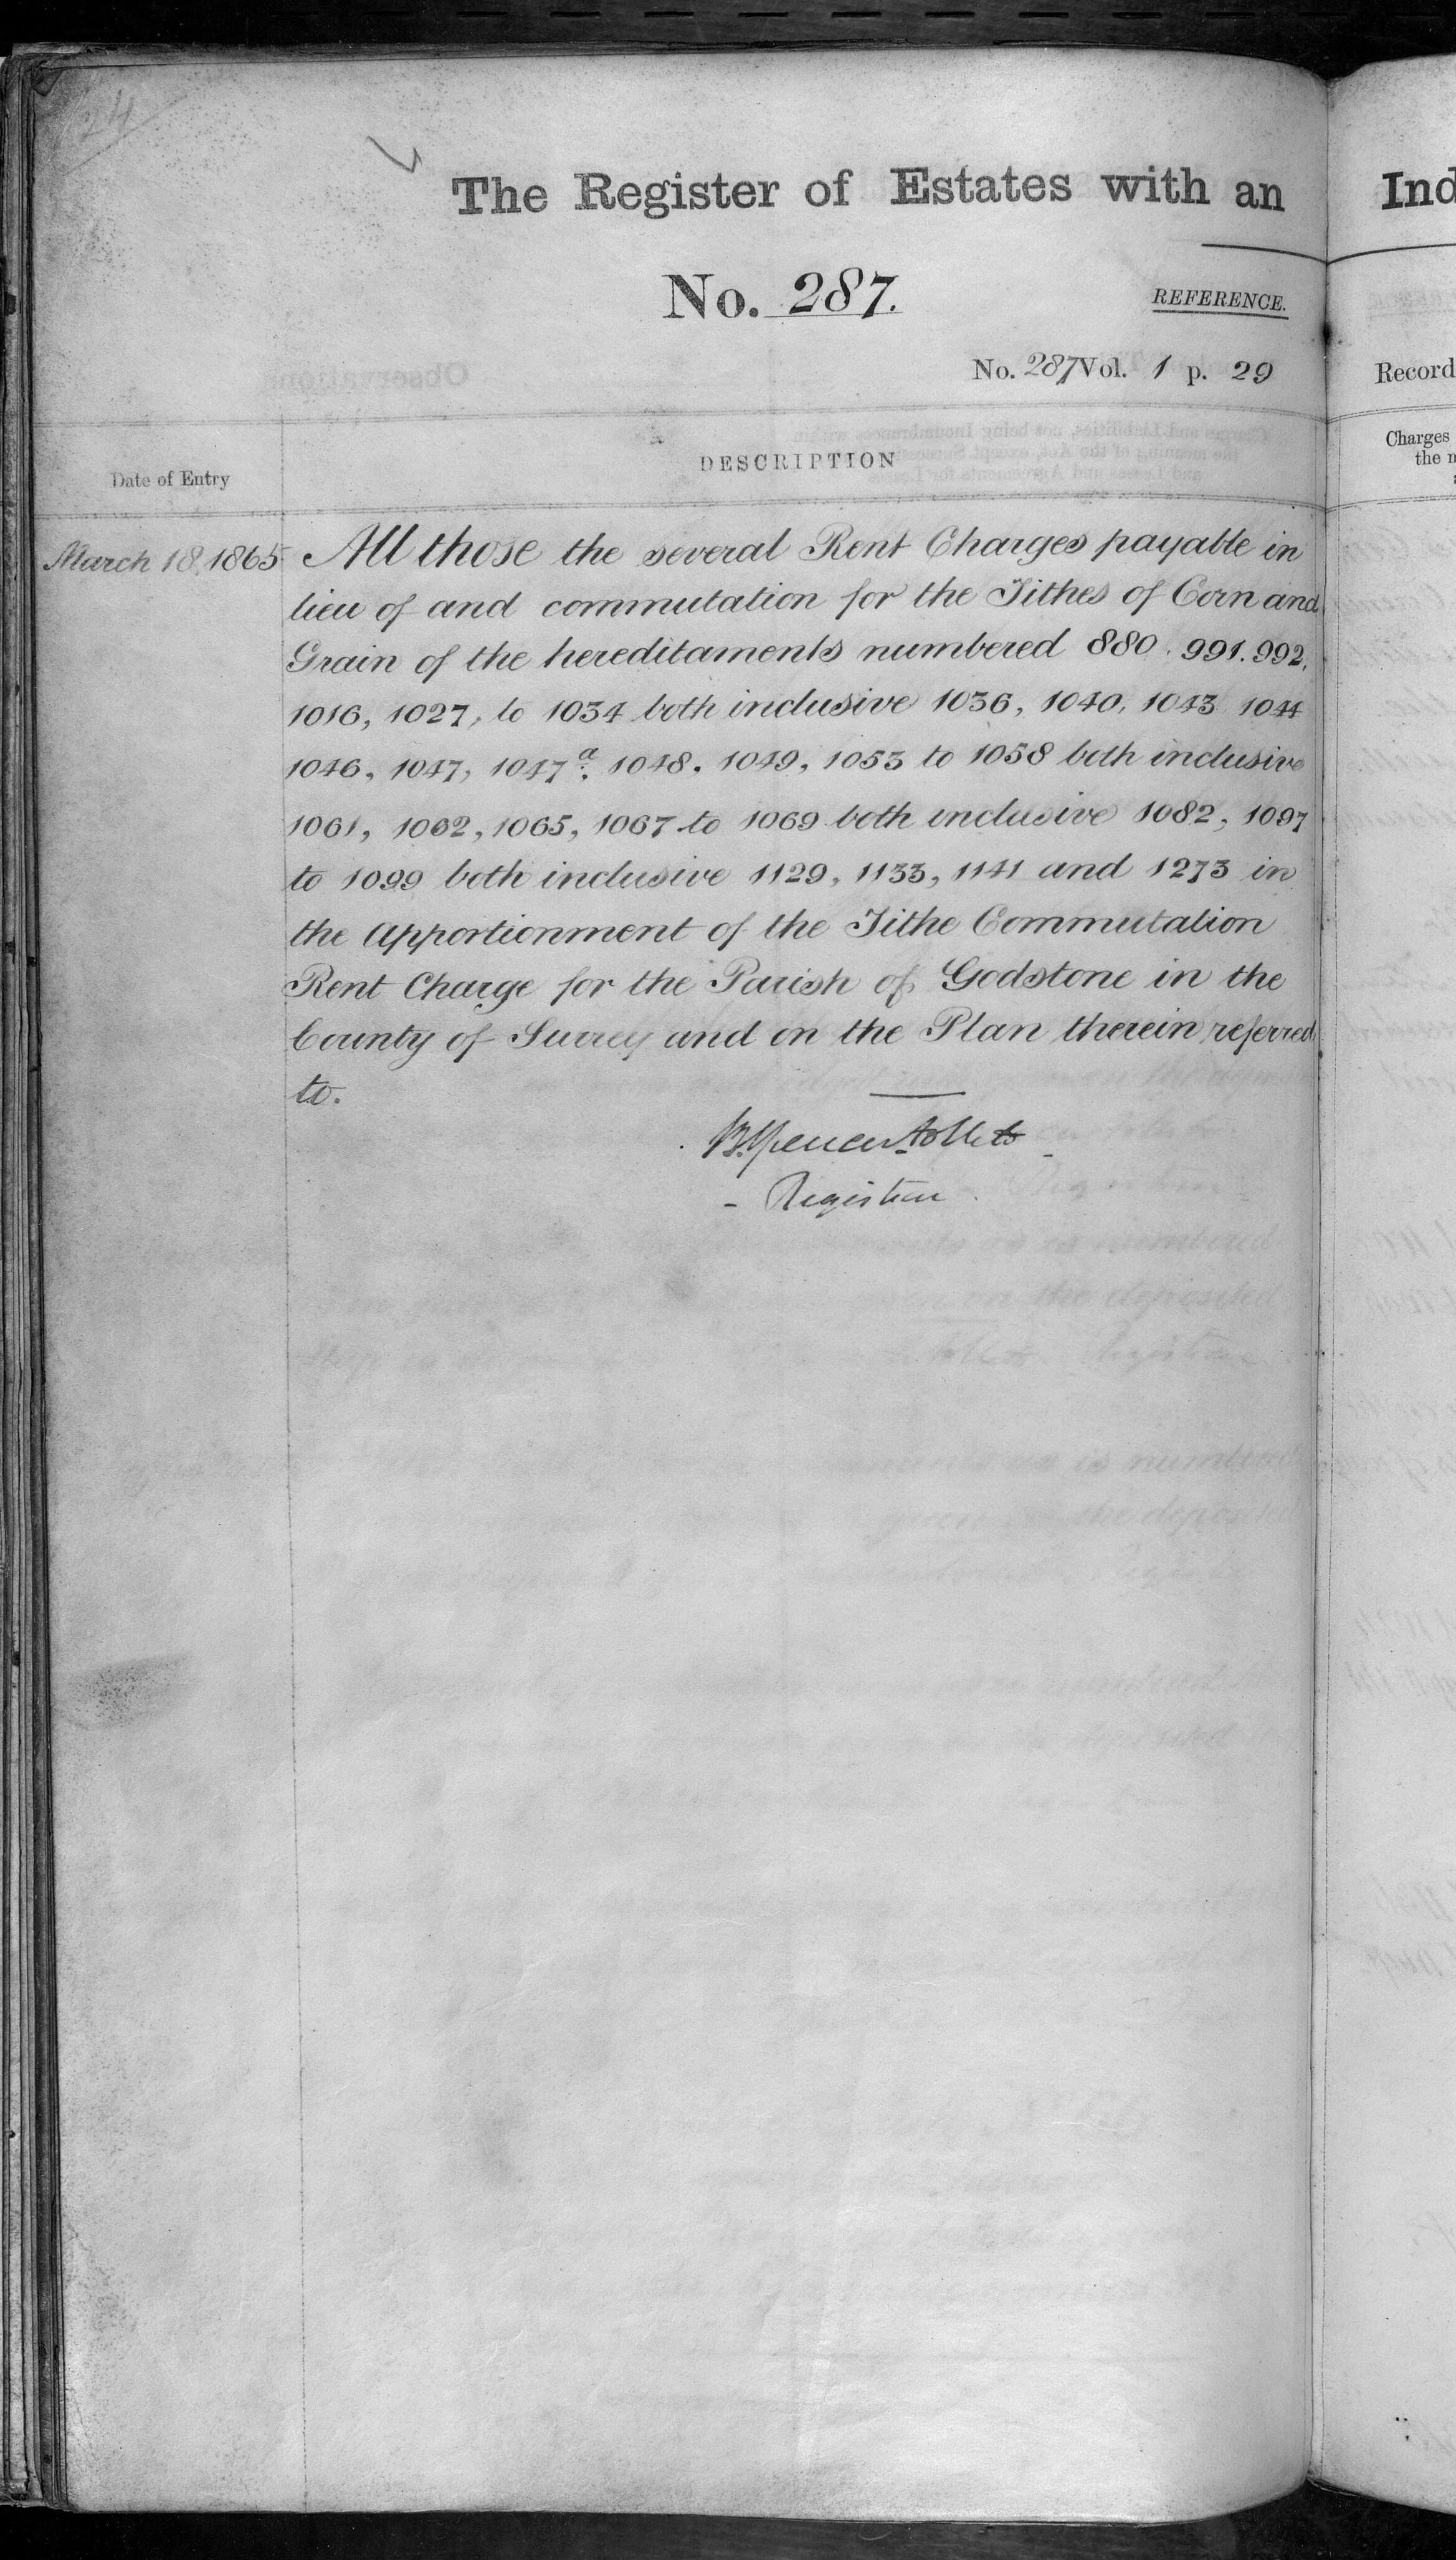 24
The Register of Estates with an
No. 287.
REFERENCE.
No. 287 Vol. 1 p. 29
Date of Entry
DESCRIPTION
March 18, 1865
All those the several Rent Charges payable in
lieu of and commutation for the Tithes of Corn and
Grain of the hereditaments numbered 880. 991. 992.
1016, 1027, to 1034 both inclusive 1036, 1040, 1043 1044
1046, 1047, 1047a, 1048. 1049, 1053 to 1058 both inclusive
1061, 1062, 1065, 1067 to 1069 both inclusive 1082, 1097
to 1099 both inclusive 1129, 1133, 1141 and 1273 in
the Apportionment of the Tithe Commutation
Rent Charge for the Parish of Godstone in the
County of Surrey and on the Plan therein referred
to.
B. Spencer Follett
- Registrar
Ind
Record
Charges
the m